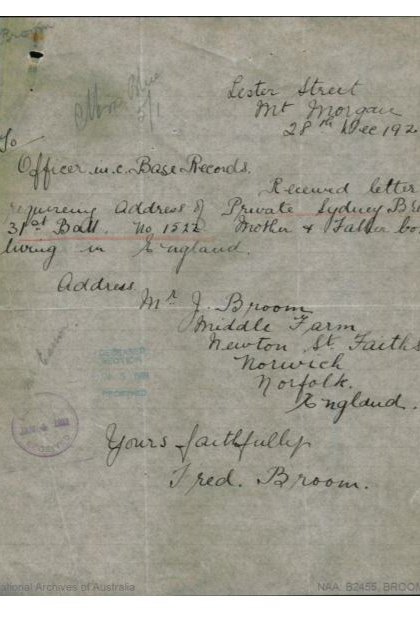 Broom
Lester Street
Mt Morgan
28th Dec 192
To
Officer in.c. Base Records.
Received letter
requireing Address of Private Sydney Br
31st Batt. No 1512 Mother & Father bo
living in England.
Address
Mr J. Broom
Middle Farm
Newton St. Faiths
Norwich
Norfolk.
England.
Yours faithfully
Fred. Broom.
ational Archives of Australia
NAA: B2455, BROOM